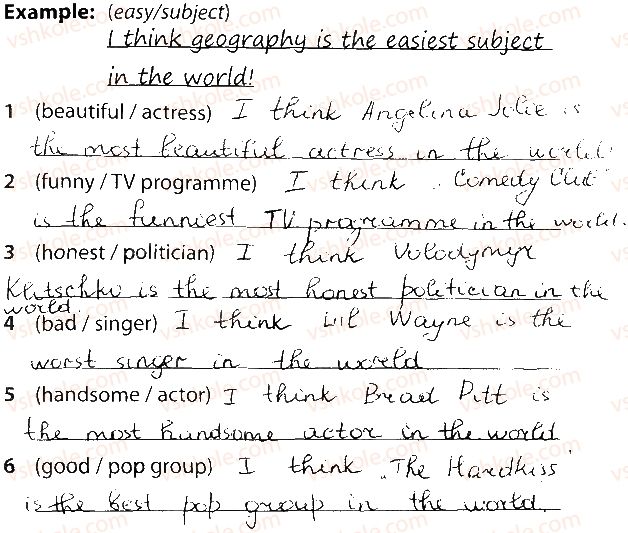 Example: (easy/subject)
I think geography is the easiest subject
in the world!
1 (beautiful / actress) I think Angelina Jolie is
the most beautiful actress in the world.
2 (funny / TV programme) I think „Comedy Club“
is the funniest TV programme in the world.
3 (honest / politician) I think Volodymyr
Klitschko is the most honest politician in the
world.
4 (bad / singer) I think Lil Wayne is the
worst singer in the world
5 (handsome / actor) I think Bread Pitt is
the most handsome actor in the world
6 (good / pop group) I think „The Hardkiss“
is the best pop group in the world.